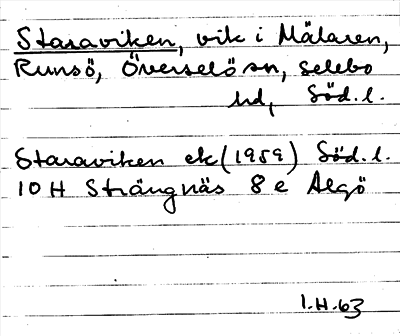 Staraviken, vik i Mälaren,
Runsö, Överselö sn, Selebo
hd, Söd.l.
Staraviken ek (1959) Söd.l.
10 H Strängnäs 8 e Algö
1.H.63